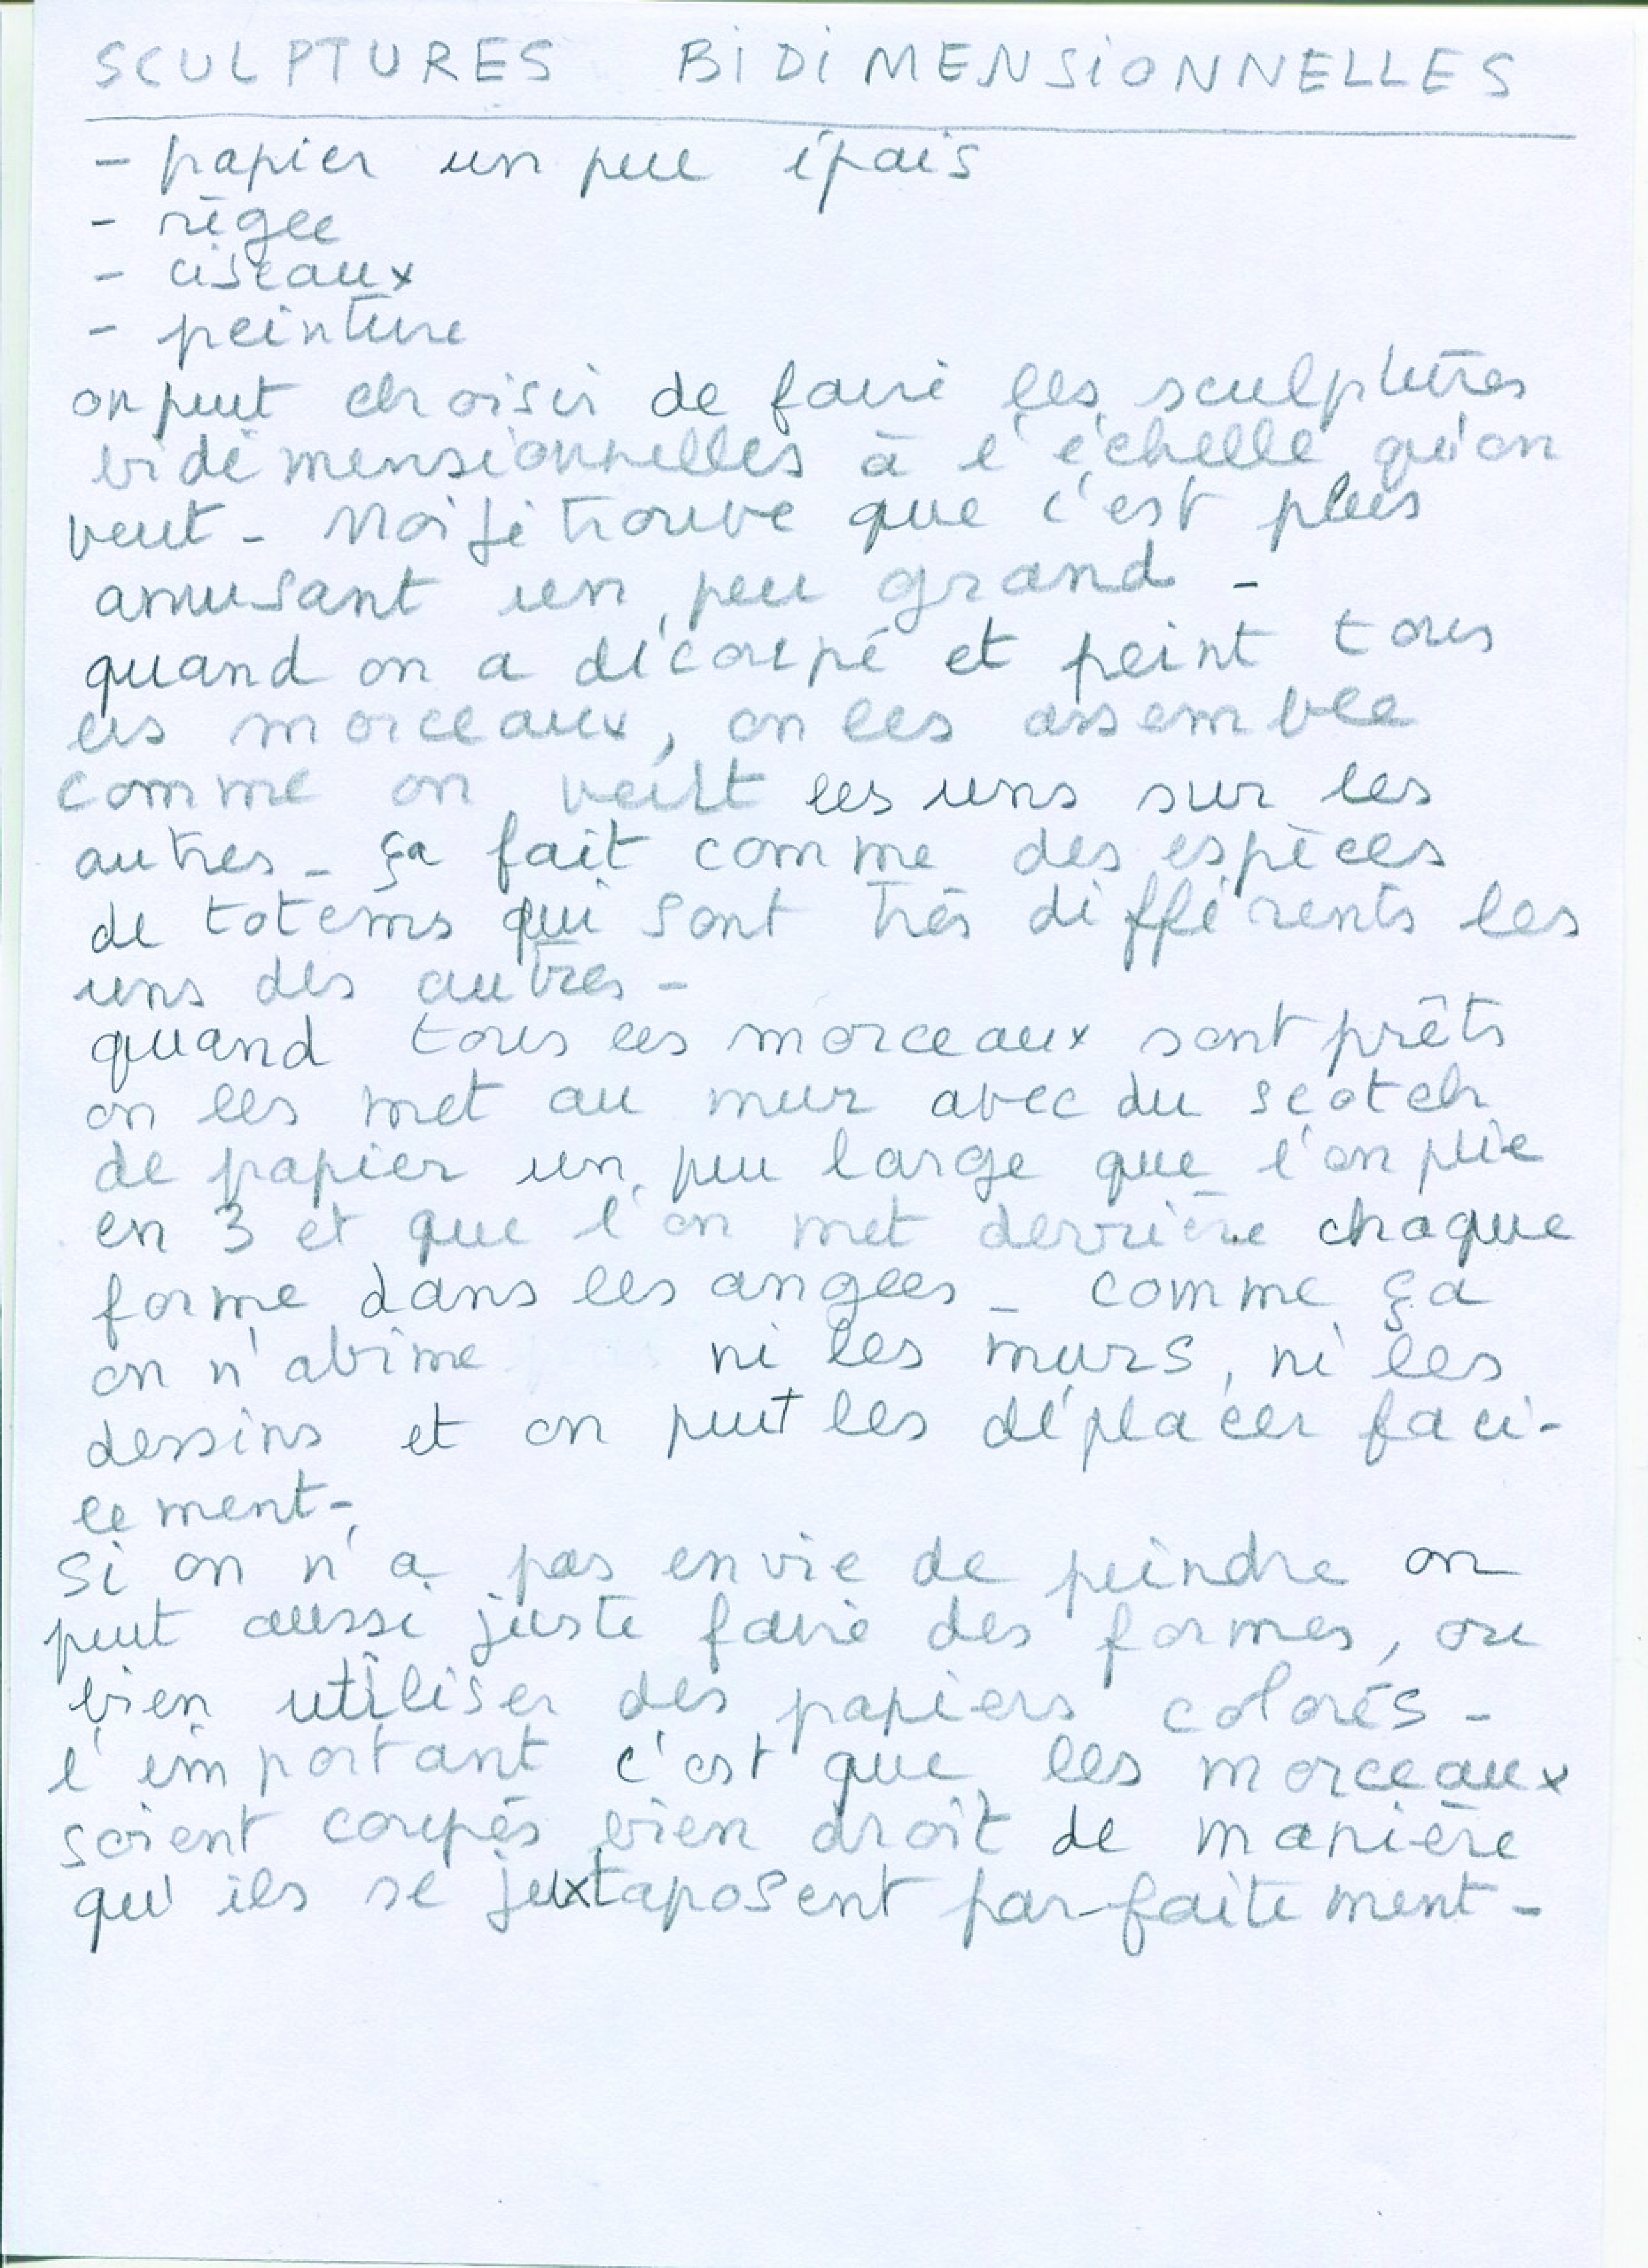 SCULPTURES BIDIMENSIONNELLES
- papier un peu épais
- règle
- ciseaux
- peinture
on peut choisir de faire les sculptures
bidimensionnelles à l'échelle qu'on
veut - Moi je trouve que c'est plus
amusant un peu grand -
quand on a découpé et peint tous
les morceaux, on les assemble
comme on veut les uns sur les
autres - ça fait comme des espèces
de totems qui sont très différents les
uns des autres -
quand tous les morceaux sont prêts
on les met au mur avec du scotch
de papier un peu large que l'on plie
en 3 et que l'on met derrière chaque
forme dans les angles - comme ça
on n'abîme ni les murs, ni les
dessins et on peut les déplacer faci-
lement -
si on n'a pas envie de peindre on
peut aussi juste faire des formes, ou
bien utiliser des papiers colorés -
l'important c'est que les morceaux
soient coupés bien droit de manière
qu'ils se juxtaposent parfaitement -